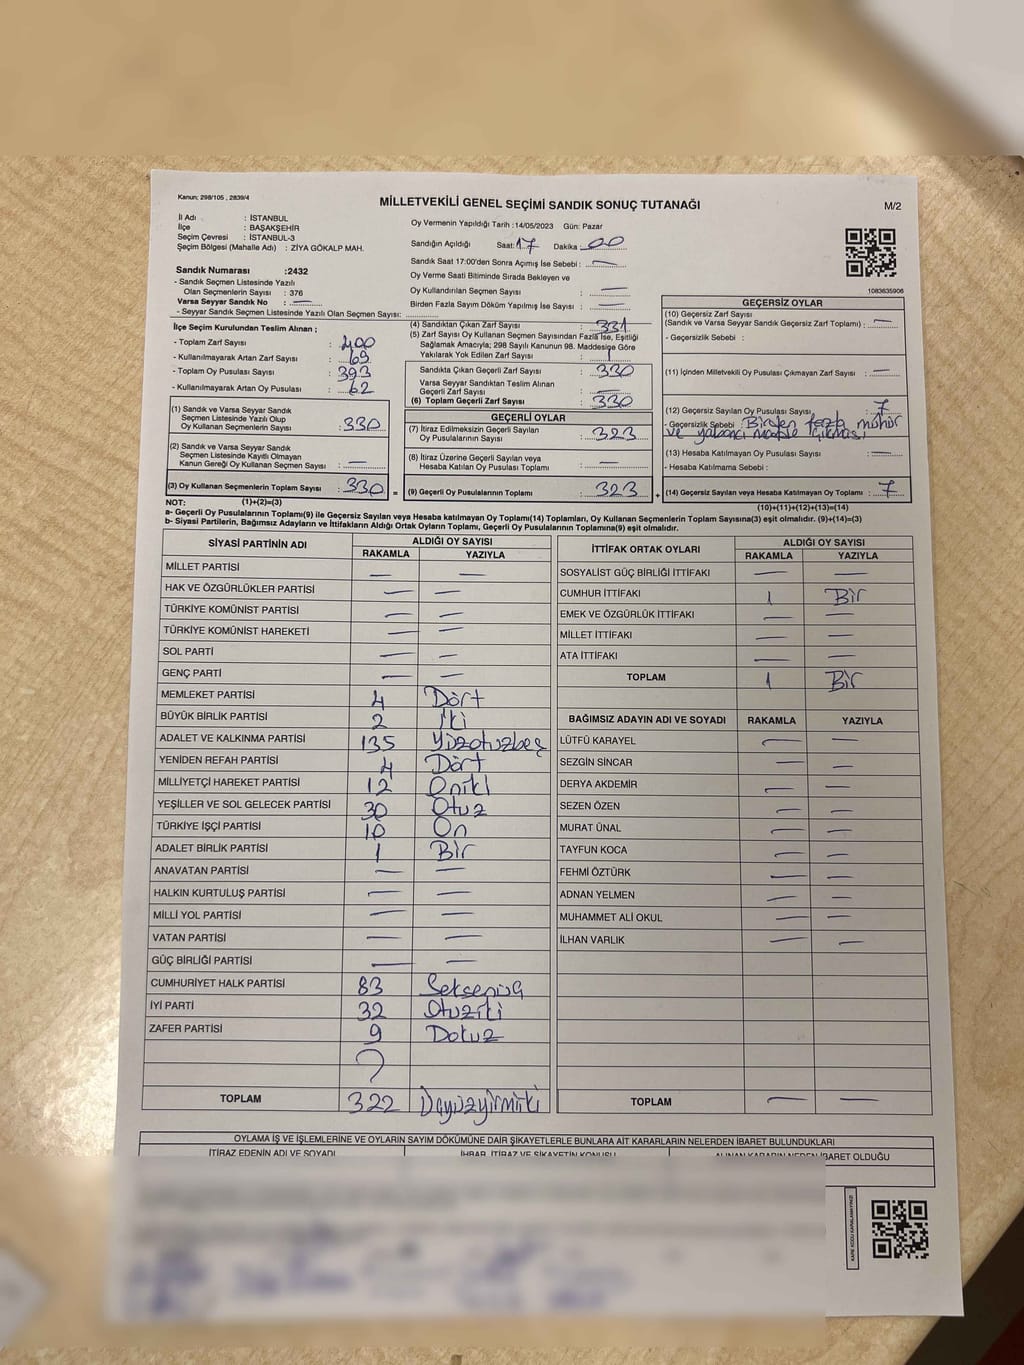 Kanun; 298/105 , 2839/4
MİLLETVEKİLİ GENEL SEÇİMİ SANDIK SONUÇ TUTANAĞI
M/2
İl Adı : İSTANBUL
İlçe : BAŞAKŞEHİR
Seçim Çevresi : İSTANBUL-3
Seçim Bölgesi (Mahalle Adı) : ZİYA GÖKALP MAH.
Oy Vermenin Yapıldığı Tarih :14/05/2023 Gün: Pazar
Sandığın Açıldığı Saat: 17 Dakika 00
Sandık Saat 17:00'den Sonra Açımış İse Sebebi : —
Oy Verme Saati Bitiminde Sırada Bekleyen ve
Oy Kullandırılan Seçmen Sayısı : —
Birden Fazla Sayım Döküm Yapılmış İse Sayısı : —
1083635906
Sandık Numarası :2432
- Sandık Seçmen Listesinde Yazılı
Olan Seçmenlerin Sayısı : 376
Varsa Seyyar Sandık No : —
- Seyyar Sandık Seçmen Listesinde Yazılı Olan Seçmen Sayısı:
İlçe Seçim Kurulundan Teslim Alınan ;
- Toplam Zarf Sayısı : 400
- Kullanılmayarak Artan Zarf Sayısı : 69
- Toplam Oy Pusulası Sayısı : 393
- Kullanılmayarak Artan Oy Pusulası : 62
(1) Sandık ve Varsa Seyyar Sandık
Seçmen Listesinde Yazılı Olup
Oy Kullanan Seçmenlerin Sayısı :330
(2) Sandık ve Varsa Seyyar Sandık
Seçmen Listesinde Kayıtlı Olmayan
Kanun Gereği Oy Kullanan Seçmen Sayısı : —
(3) Oy Kullanan Seçmenlerin Toplam Sayısı : 330 =
(4) Sandıktan Çıkan Zarf Sayısı : 331
(5) Zarf Sayısı Oy Kullanan Seçmen Sayısından Fazla İse, Eşitliği
Sağlamak Amacıyla; 298 Sayılı Kanunun 98. Maddesine Göre
Yakılarak Yok Edilen Zarf Sayısı : 1
Sandıkta Çıkan Geçerli Zarf Sayısı : 330
Varsa Seyyar Sandıktan Teslim Alınan
Geçerli Zarf Sayısı : —
(6) Toplam Geçerli Zarf Sayısı : 330
GEÇERLİ OYLAR
(7) İtiraz Edilmeksizin Geçerli Sayılan
Oy Pusulalarının Sayısı : 323
(8) İtiraz Üzerine Geçerli Sayılan veya
Hesaba Katılan Oy Pusulası Toplamı : —
(9) Geçerli Oy Pusulalarının Toplamı : 323 +
GEÇERSİZ OYLAR
(10) Geçersiz Zarf Sayısı
(Sandık ve Varsa Seyyar Sandık Geçersiz Zarf Toplamı) : —
- Geçersizlik Sebebi :
(11) İçinden Milletvekili Oy Pusulası Çıkmayan Zarf Sayısı : —
(12) Geçersiz Sayılan Oy Pusulası Sayısı : 7
- Geçersizlik Sebebi : Birden fazla mühür
ve yabancı madde çıkması
(13) Hesaba Katılmayan Oy Pusulası Sayısı : —
- Hesaba Katılmama Sebebi :
(14) Geçersiz Sayılan veya Hesaba Katılmayan Oy Toplamı : 7
NOT: (1)+(2)=(3)
(10)+(11)+(12)+(13)=(14)
a- Geçerli Oy Pusulalarının Toplamı(9) ile Geçersiz Sayılan veya Hesaba katılmayan Oy Toplamı(14) Toplamları, Oy Kullanan Seçmenlerin Toplam Sayısına(3) eşit olmalıdır. (9)+(14)=(3)
b- Siyasi Partilerin, Bağımsız Adayların ve İttifakların Aldığı Ortak Oyların Toplamı, Geçerli Oy Pusulalarının Toplamına(9) eşit olmalıdır.
SİYASİ PARTİNİN ADI ALDIĞI OY SAYISI
RAKAMLA YAZIYLA
MİLLET PARTİSİ — —
HAK VE ÖZGÜRLÜKLER PARTİSİ — —
TÜRKİYE KOMÜNİST PARTİSİ — —
TÜRKİYE KOMÜNİST HAREKETİ — —
SOL PARTİ — —
GENÇ PARTİ — —
MEMLEKET PARTİSİ 4 Dört
BÜYÜK BİRLİK PARTİSİ 2 İki
ADALET VE KALKINMA PARTİSİ 135 Yüzotuzbeş
YENİDEN REFAH PARTİSİ 4 Dört
MİLLİYETÇİ HAREKET PARTİSİ 12 Oniki
YEŞİLLER VE SOL GELECEK PARTİSİ 30 Otuz
TÜRKİYE İŞÇİ PARTİSİ 10 On
ADALET BİRLİK PARTİSİ 1 Bir
ANAVATAN PARTİSİ — —
HALKIN KURTULUŞ PARTİSİ — —
MİLLİ YOL PARTİSİ — —
VATAN PARTİSİ — —
GÜÇ BİRLİĞİ PARTİSİ — —
CUMHURİYET HALK PARTİSİ 83 Seksenüç
İYİ PARTİ 32 Otuziki
ZAFER PARTİSİ 9 Dokuz
TOPLAM 322 Üçyüzyirmiiki
İTTİFAK ORTAK OYLARI ALDIĞI OY SAYISI
RAKAMLA YAZIYLA
SOSYALİST GÜÇ BİRLİĞİ İTTİFAKI — —
CUMHUR İTTİFAKI 1 Bir
EMEK VE ÖZGÜRLÜK İTTİFAKI — —
MİLLET İTTİFAKI — —
ATA İTTİFAKI — —
TOPLAM 1 Bir
BAĞIMSIZ ADAYIN ADI VE SOYADI RAKAMLA YAZIYLA
LÜTFÜ KARAYEL — —
SEZGİN SİNCAR — —
DERYA AKDEMİR — —
SEZEN ÖZEN — —
MURAT ÜNAL — —
TAYFUN KOCA — —
FEHMİ ÖZTÜRK — —
ADNAN YELMEN — —
MUHAMMET ALİ OKUL — —
İLHAN VARLIK — —
TOPLAM — —
OYLAMA İŞ VE İŞLEMLERİNE VE OYLARIN SAYIM DÖKÜMÜNE DAİR ŞİKAYETLERLE BUNLARA AİT KARARLARIN NELERDEN İBARET BULUNDUKLARI
İTİRAZ EDENİN ADI VE SOYADI İHBAR, İTİRAZ VE ŞİKAYETİN KONUSU ALINAN KARARIN NEDEN İBARET OLDUĞU